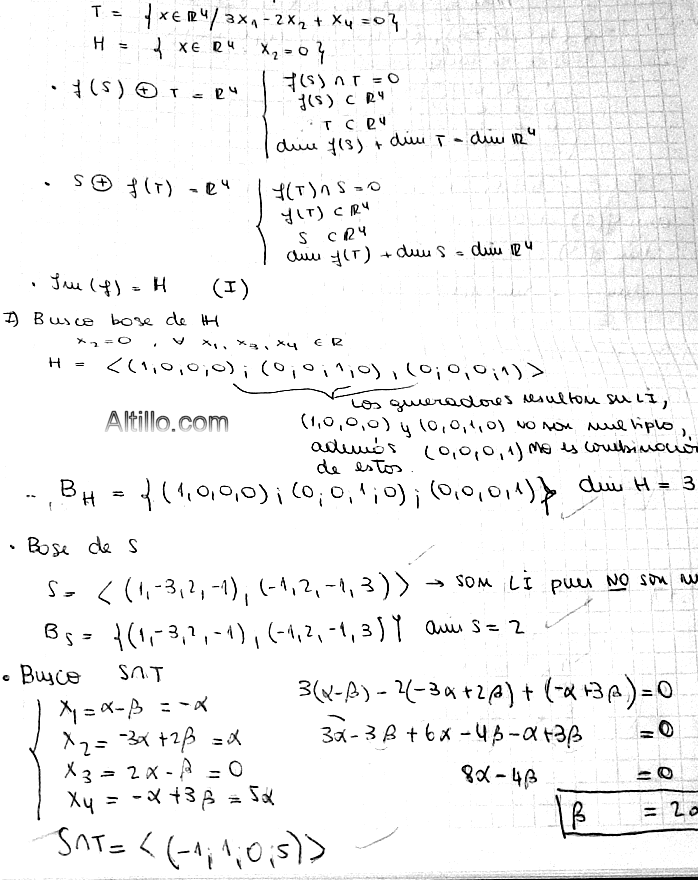 T = { x ∈ ℝ⁴ / 3x₁ - 2x₂ + x₄ = 0 }
H = { x ∈ ℝ⁴ x₂ = 0 }
• f(S) ⊕ T = ℝ⁴ { f(S) ∩ T = 0
f(S) ⊂ ℝ⁴
T ⊂ ℝ⁴
dim f(S) + dim T = dim ℝ⁴
• S ⊕ f(T) = ℝ⁴ { f(T) ∩ S = 0
f(T) ⊂ ℝ⁴
S ⊂ ℝ⁴
dim f(T) + dim S = dim ℝ⁴
• Im (f) = H (I)
I) Busco base de H
x₂ = 0 , ∀ x₁, x₃, x₄ ∈ ℝ
H = <(1,0,0,0) ; (0,0,1,0) , (0,0,0,1)>
Los generadores resultan ser LI,
Altillo.com
(1,0,0,0) y (0,0,1,0) no son multiplo,
además (0,0,0,1) no es combinación
de estos.
∴ B_H = {(1,0,0,0) ; (0,0,1,0) ; (0,0,0,1)} dim H = 3
• Base de S
S = <(1,-3,2,-1), (-1,2,-1,3)> → son LI pues NO son
B_S = {(1,-3,2,-1), (-1,2,-1,3)} dim S = 2
• Busco S∩T
x₁ = α - β = -α
x₂ = -3α + 2β = α
x₃ = 2α - β = 0
x₄ = -α + 3β = 5α
3(α-β) - 2(-3α+2β) + (-α+3β) = 0
3α - 3β + 6α - 4β - α + 3β = 0
8α - 4β = 0
β = 2α
S∩T = <(-1; 1; 0; 5)>